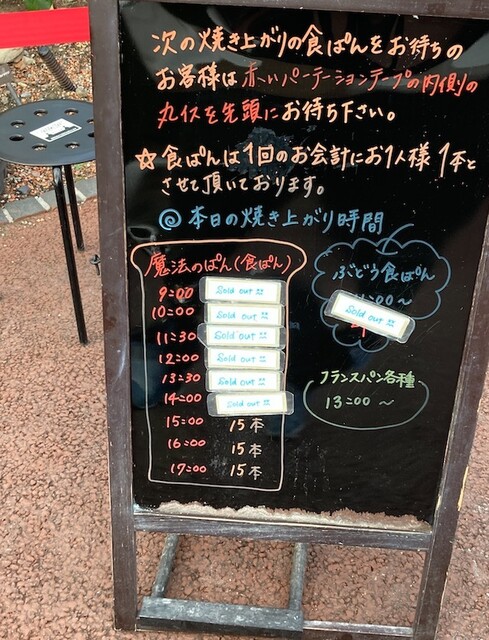 次の焼き上がりの食ぱんをお待ちの
お客様は赤いパーテーションテープの内側の
丸イスを先頭にお待ち下さい。
☆食ぱんは1回のお会計にお1人様1本と
させて頂いております。
◎本日の焼き上がり時間
魔法のぱん(食ぱん)
9:00 Sold out
10:00 Sold out
11:30 Sold out
12:00 Sold out
13:30 Sold out
14:00 Sold out
15:00 15本
16:00 15本
17:00 15本
ぶどう食ぱん
:00～
Sold out
フランスパン各種
13:00～